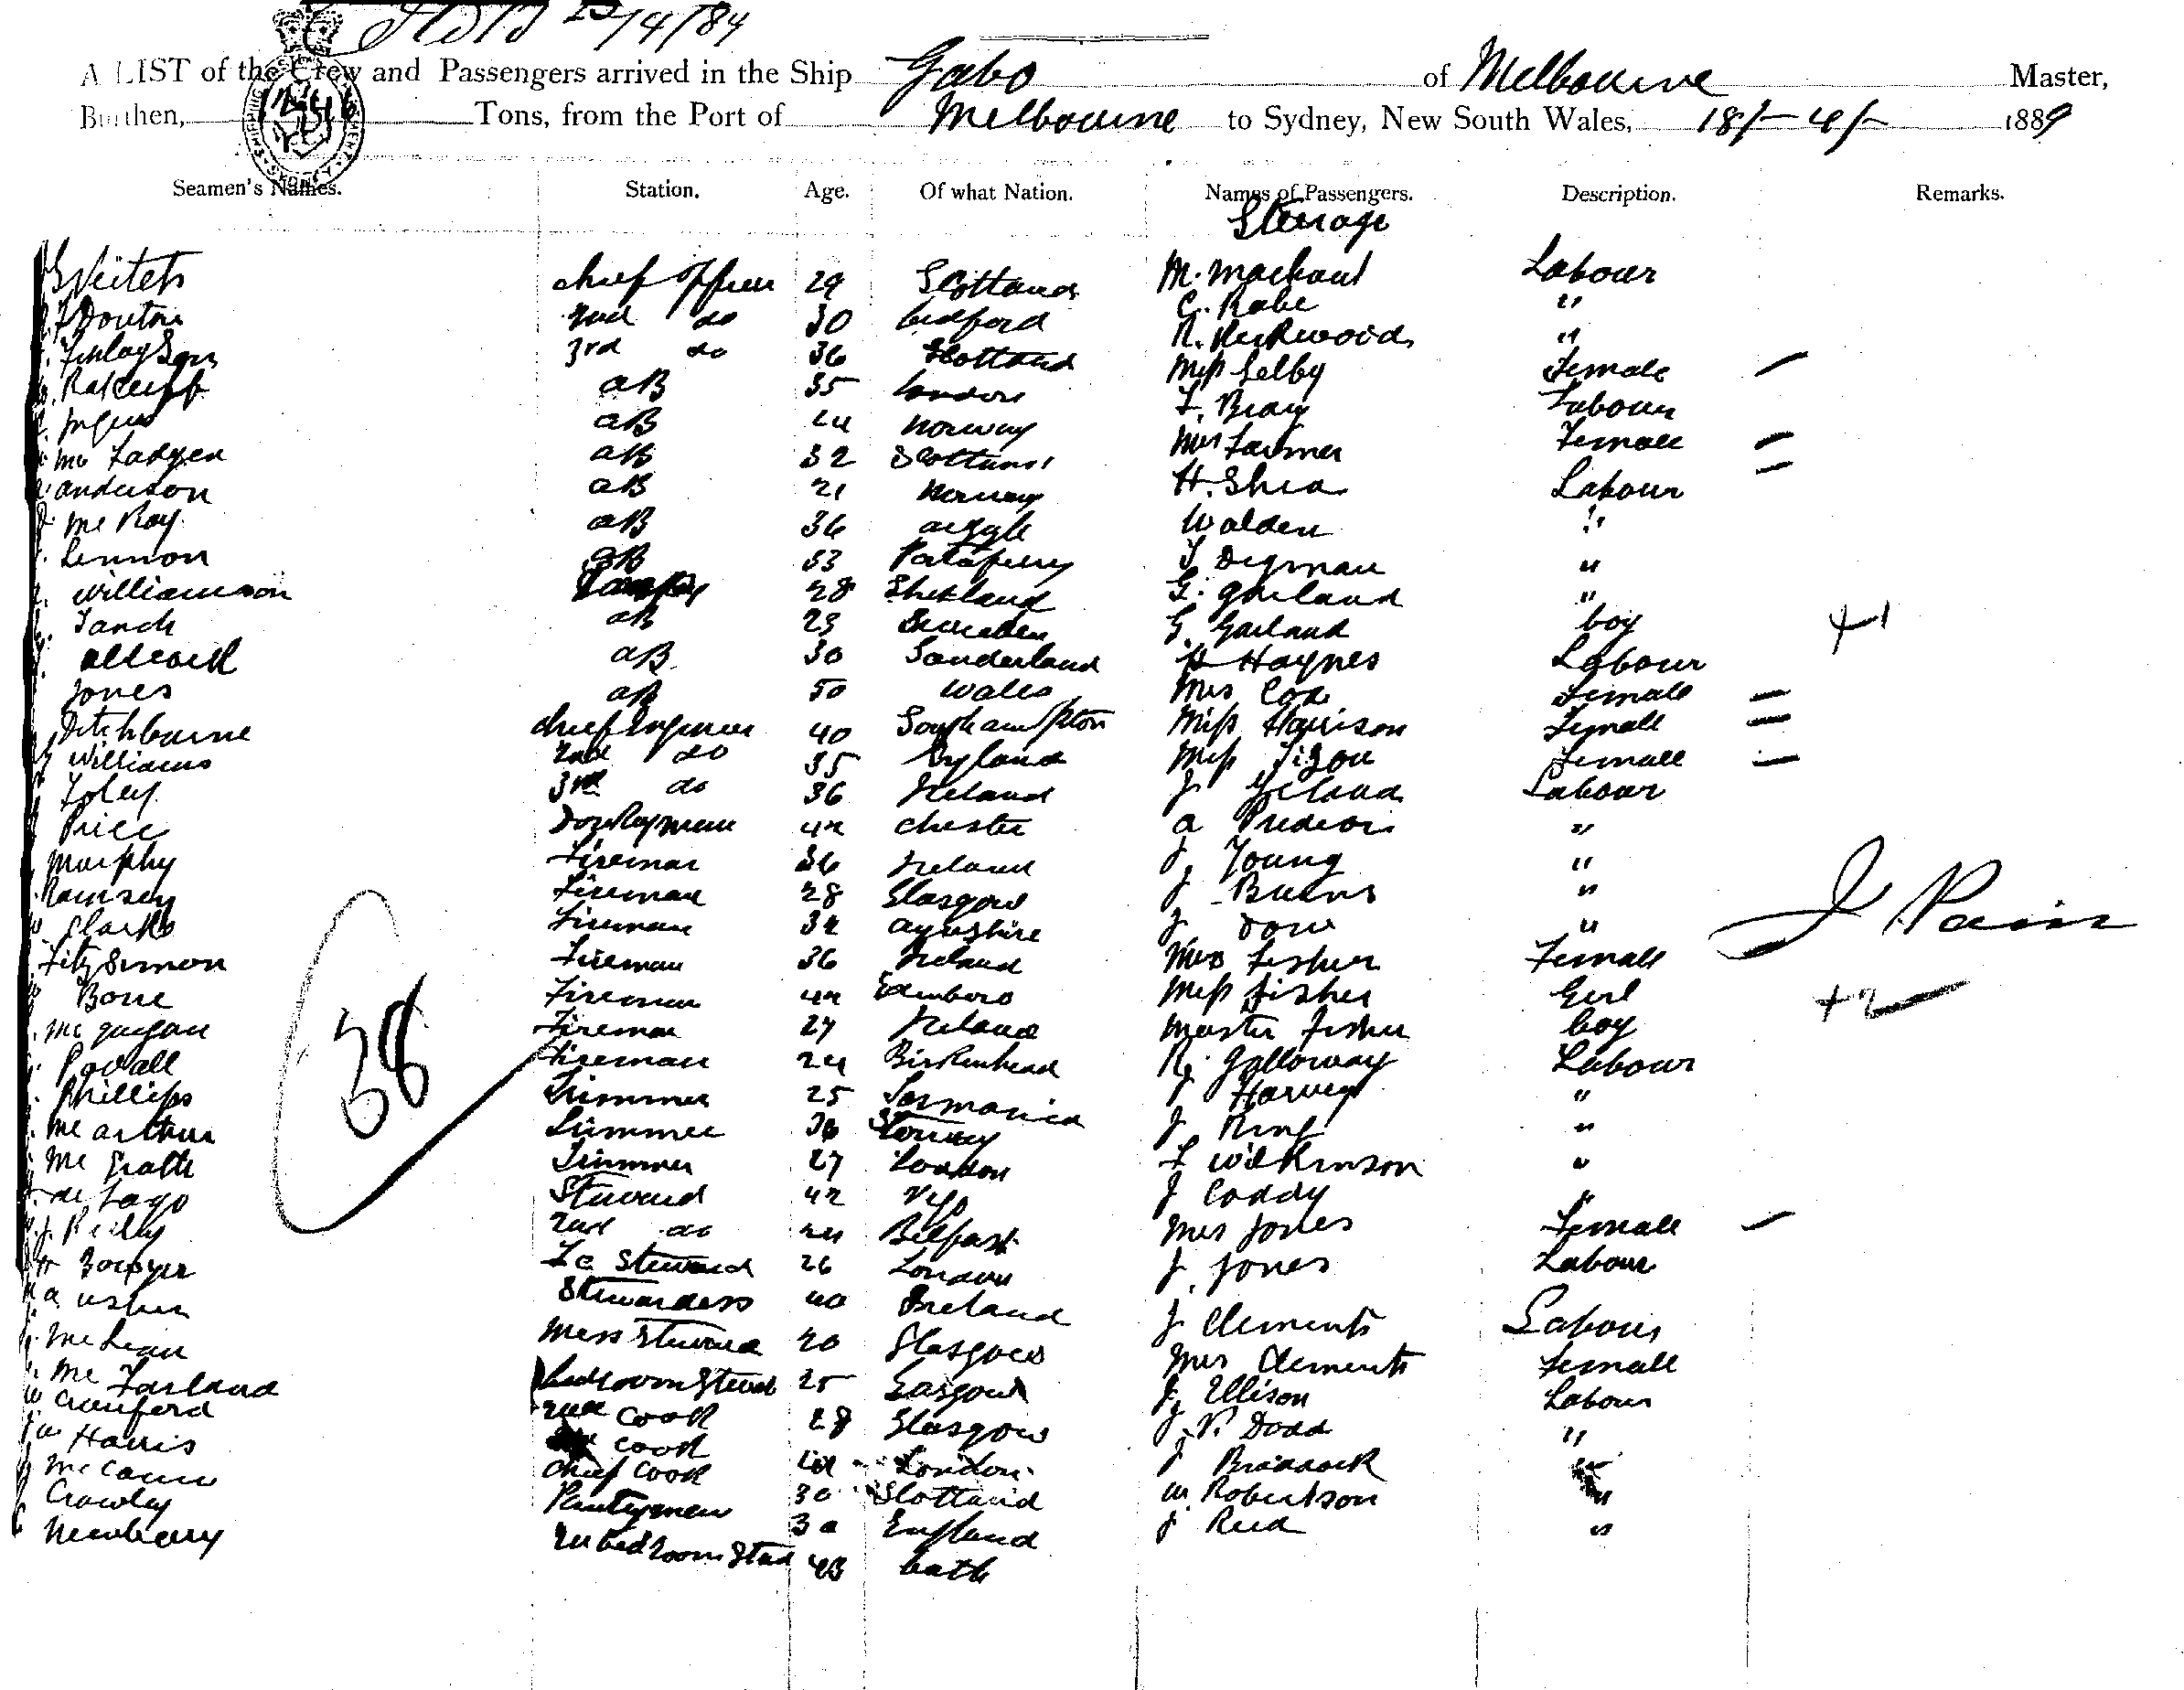 25/4/89
A LIST of the Crew and Passengers arrived in the Ship Gabo of Melbourne Master,
Burthen, Tons, from the Port of Melbourne to Sydney, New South Wales, 18/-4/- 1889
Seamen's Names. Station. Age. Of what Nation. Names of Passengers. Description. Remarks.
Steerage
Veitch chief officer 29 Scotland M. Labour
2nd do 30 bedford C. Rabe "
Finlayson 3rd do 36 Scotland R. "
Ratcliff aB 35 London Miss Selby Female
aB 24 Norway F. Bray Labour
aB 32 Scotland Mrs Farmer Female
anderson aB 21 Norway H. Shea Labour
Mc Ray aB 36 argyle Walden "
Lennon aB 33 "
Williamson 28 Shetland G. garland "
aB 23 Sweden G. Garland boy +1
allcock aB 30 Sunderland H Haynes Labour
Jones aB 50 Wales Mrs Cox Female
Ditchburne chief Engineer 40 Southampton Miss Harrison Female
Williams 2nd do 35 England Miss Female
Foley 3rd do 36 Ireland J Labour
Price Donkeyman 42 chester a "
Murphy Fireman 36 Ireland J Young "
Ramsey Fireman 28 Glasgow J Burns "
Clarke Fireman 32 ayrshire J Dow "
J Pain
Fitz Simon Fireman 36 Ireland Mrs Fisher Female
Bone Fireman 42 Edenboro Miss fisher Girl +2
Mc guigan Fireman 27 Ireland Master Fisher boy
38
Fireman 24 Birkenhead R. Galloway Labour
Phillips Trimmer 25 Tasmania J Harvey "
Mc arthur Trimmer 36 J King "
Mc Gratte Trimmer 27 London F Wilkinson "
de Lago Steward 42 Vigo J Caddy "
J. Reilly 2nd do 24 Belfast Mrs Jones Female
Bowyer Steward 26 London J. Jones Labour
a usher Stewardess 40 Ireland J Clements Labour
Mc Lean Mess Steward 20 Glasgow Mrs Clements Female
Mc Farland bedroom Steward 25 Glasgow J Ellison Labour
Crauford 2nd Cook 28 Glasgow J. P. Dodd "
Harris Cook London J Braddock "
Mc Cann chief Cook 30 Scotland W Robertson "
Crowley Pantryman 30 England J Reid "
Newberry 2nd bedroom Stwd 43 bath